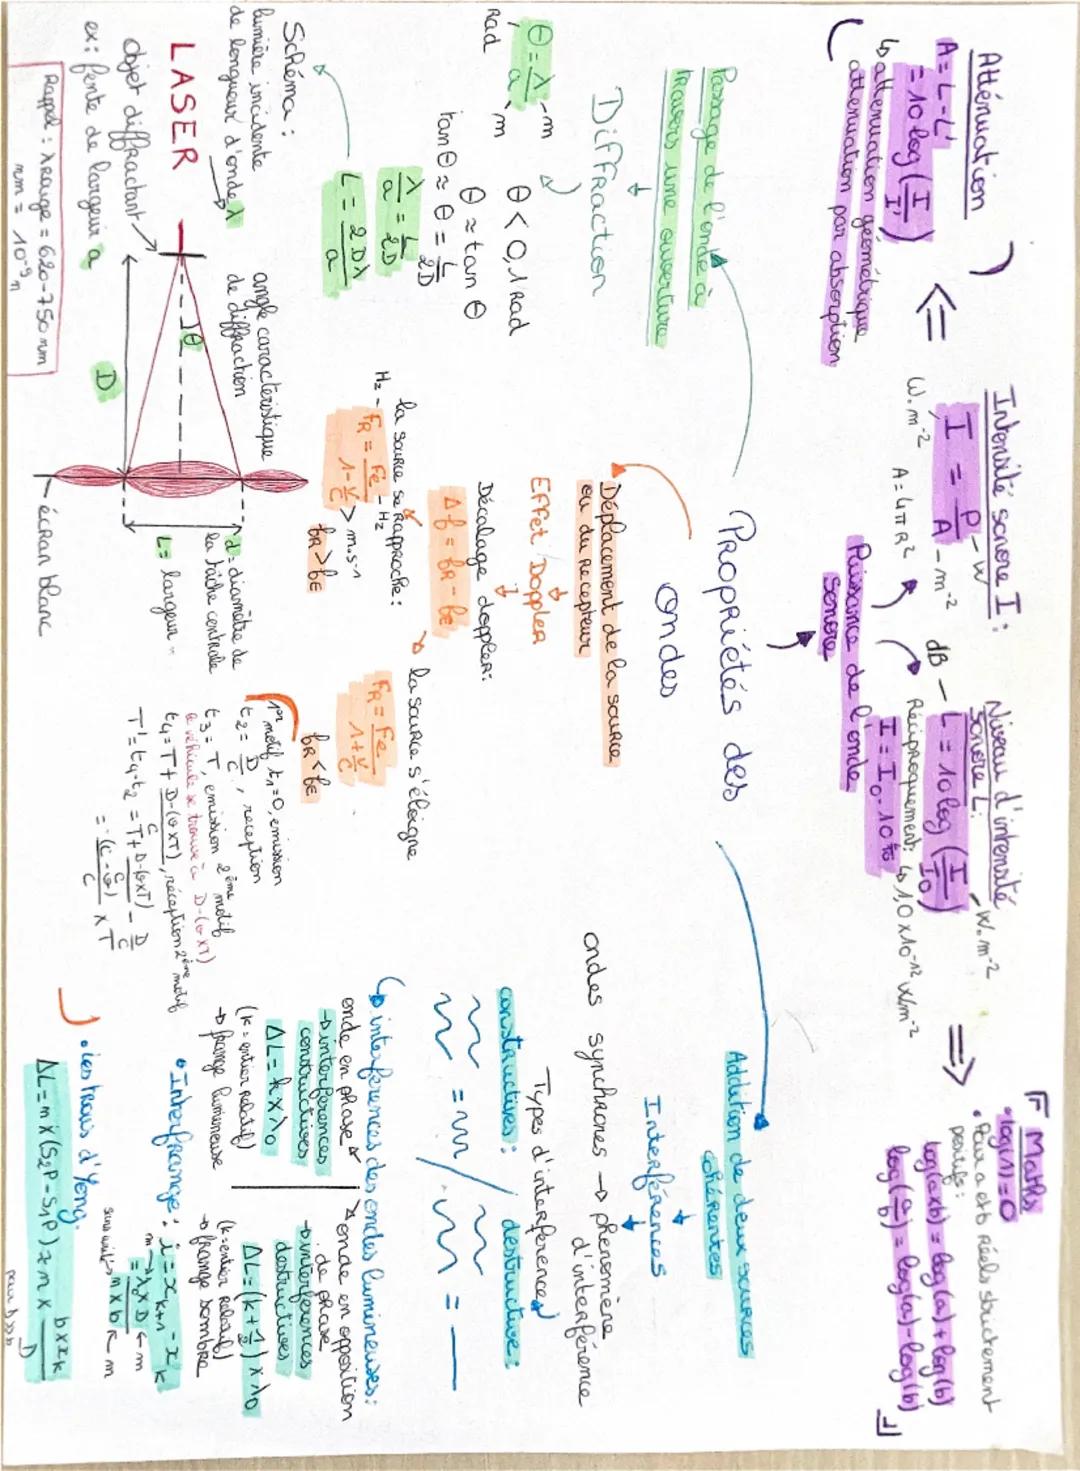 Atténuation
A = L - L'
= 10 log (I/I')
↳ atténuation géométrique
atténuation par absorption
Intensité sonore I :
I = P/A
W
m^2
W.m^-2
A = 4πR^2
Niveau d'intensité
sonore L :
dB
L = 10 log (I/I0)
W.m^-2
Réciproquement :
↳ 1,0 x 10^-12 W/m^-2
I = I0 . 10^L/10
Puissance de l'onde
sonore
Maths
• log(1) = 0
• Pour a et b réels strictement
positifs :
log(axb) = log(a) + log(b)
log(a/b) = log(a) - log(b)
PROPRIÉTÉS des
ondes
Passage de l'onde à
travers une ouverture
Diffraction
θ = λ/a
m
m
rad
θ < 0,1 rad
θ ≈ tan θ
tan θ ≈ θ = L/2D
λ/a = L/2D
L = 2Dλ/a
Schéma :
lumière incidente
de longueur d'onde λ
LASER
objet diffractant
ex : fente de largeur a
angle caractéristique
de diffraction
θ
D
d = diamètre de
la tâche centrale
L = largeur "
écran blanc
Rappel : λ rouge = 620-750 nm
nm = 10^-9 m
Déplacement de la source
ou du récepteur
Effet Doppler
Décalage doppler :
Δf = fR - fE
la source se rapproche :
Hz - FR = Fe/1-V/C - Hz
m.s^-1
fR > fE
la source s'éloigne
FR = Fe/1+V/C
fR < fE
1er motif t1 = 0, émission
t2 = D/C, réception
t3 = T, émission 2ème motif
le véhicule se trouve à D-(vxT)
t4 = T + D-(vxT)/C, réception 2ème motif
T' = t4 - t2 = T + D-(vxT)/C - D/C
= (C-v)/C x T
Addition de deux sources
cohérentes
Interférences
ondes synchrones → phénomène
d'interférence
Types d'interférence
constructives : / destructive :
↳ interférences des ondes lumineuses :
onde en phase
→ interférences
constructives
ΔL = k x λ0
(k = entier relatif)
→ frange lumineuse
onde en opposition
de phase
→ interférences
destructives
ΔL = (k + 1/2) x λ0
(k = entier relatif)
→ frange sombre
• Interfrange : i = x k+1 - x k
m → = λ x D ← m
sans unité n x b ← m
• les trous d'Yong.
ΔL = m x (S2P - S1P) ≈ n x b x xk/D
pour D>>b